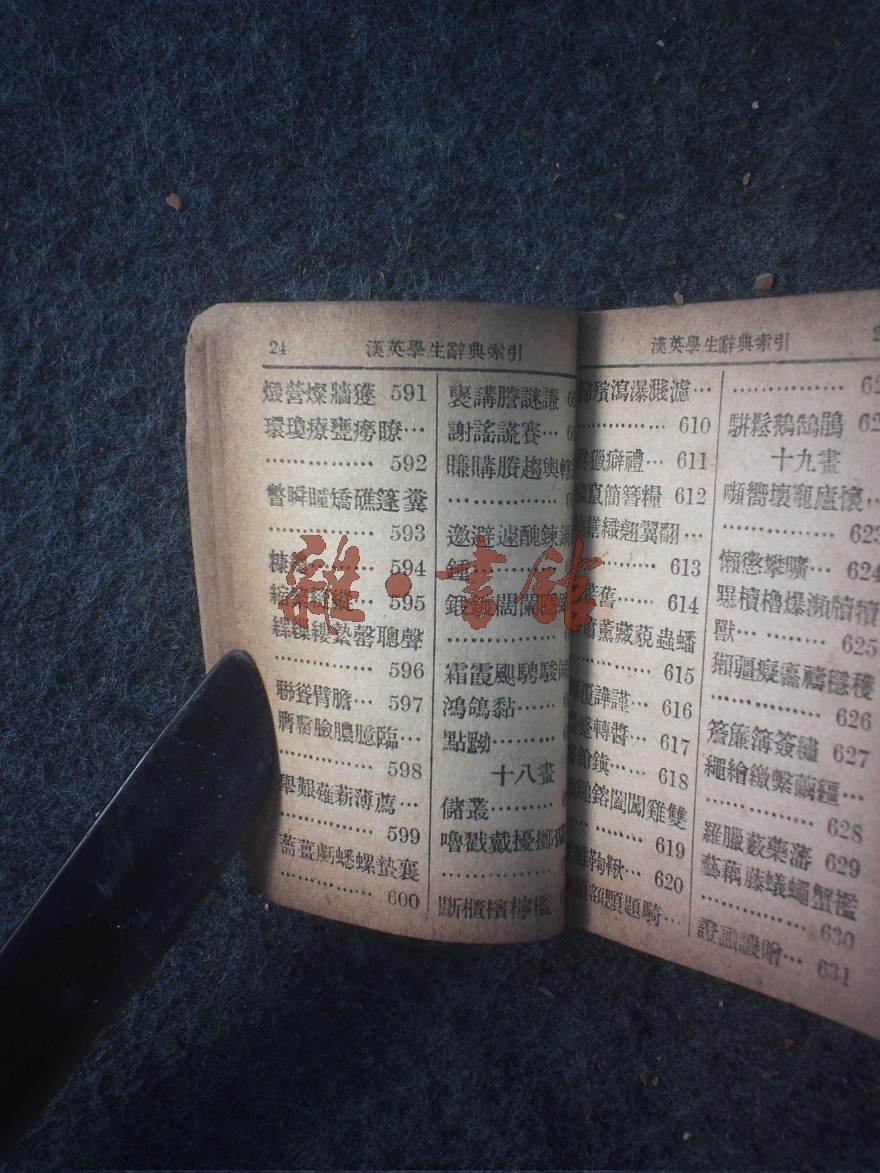 24
漢英學生辭典索引
燬營燦牆獲 591
環瓊療甕癆瞭…
…………… 592
瞥瞬瞳矯礁篷糞
…………… 593
…… 594
縱… 595
縲縷縫縶罄聰聲
…………… 596
聯聳臂膽… 597
膺臉膿臆臨…
…………… 598
舉艱薤薪薄薦…
…………… 599
薔薑虧蟋螺蟄襄
…………… 600
褻講謄謎謙
謝謠謊賽…
賺購賸趨輿轄
……………
邀避遽醜鍊
鍾
闊闌
……………
霜霞颶騁駿
鴻鴿黏……
點黝………
十八畫
儲叢………
嚕戳戴擾擲
……………
斷櫃檳檸檻
漢英學生辭典索引
殯瀉瀑濺濾…
…………… 610
獵癖禮… 611
竄簡簪糧 612
繕織翹翼翻…
…………… 613
舊…… 614
薰藏藐蟲蟠
…………… 615
覆謹… 616
轉醬… 617
鎮…… 618
鎔闔闖雞雙
…………… 619
鞦… 620
額顋題騎…
……………
騈鬆鵝鵠鵑
十九畫
嚮壞寵廬懷…
…………… 623
懶懲攀曠… 624
櫝櫓爆瀕牘犢
獸………… 625
獺疆癡禱穩穫
…………… 626
簷廉簿簽繡 627
繩繪繳繫繭繮…
…………… 628
羅臘藪藥藩 629
藝藕藤蟻蠅蟹檻
…………… 630
證識譏贈… 631
雜·書館